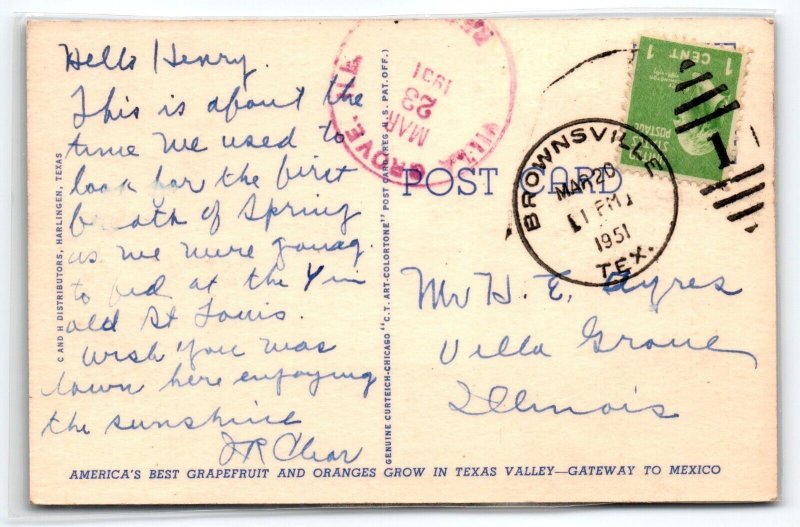 Hello Henry.
This is about the
time we used to
look for the first
breath of Spring
as we were going
to bed at the Y in
old St Louis.
Wish you was
down here enjoying
the sunshine
J R
C AND H DISTRIBUTORS, HARLINGEN, TEXAS
GENUINE CURTEICH-CHICAGO "C.T. ART-COLORTONE" POST CARD (REG. U.S. PAT. OFF.)
VILLA GROVE, ILL
MAR
23
1951
POST CARD
BROWNSVILLE
MAR 20
1 PM
1951
TEX.
1
1 CENT 1
STATES
POSTAGE
Mr H. E. Ayres
Villa Grove
Illinois
AMERICA'S BEST GRAPEFRUIT AND ORANGES GROW IN TEXAS VALLEY—GATEWAY TO MEXICO